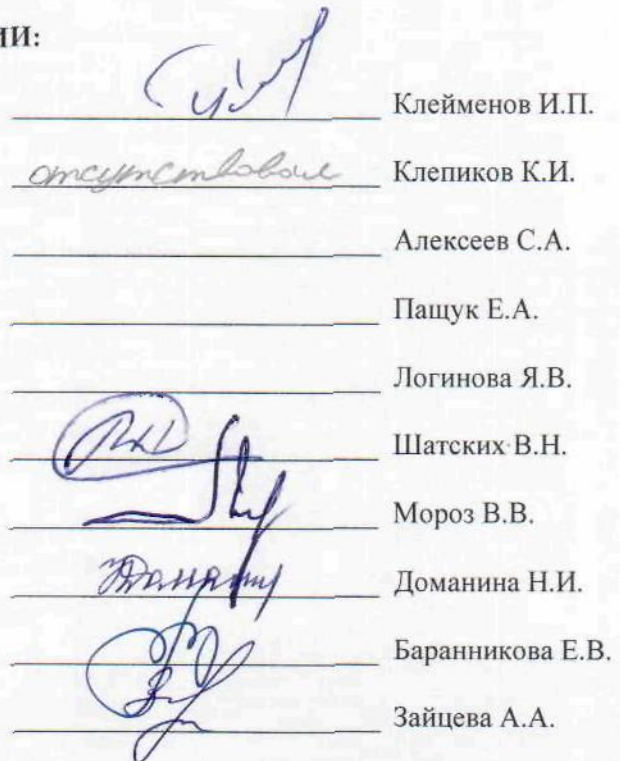 ИИ:
Клейменов И.П.
отсутствовал Клепиков К.И.
Алексеев С.А.
Пащук Е.А.
Логинова Я.В.
Шатских В.Н.
Мороз В.В.
Доманина Н.И.
Баранникова Е.В.
Зайцева А.А.